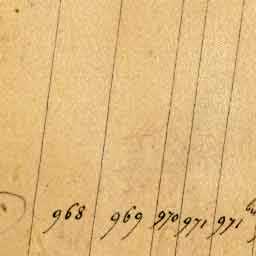 968 969 970 971 971